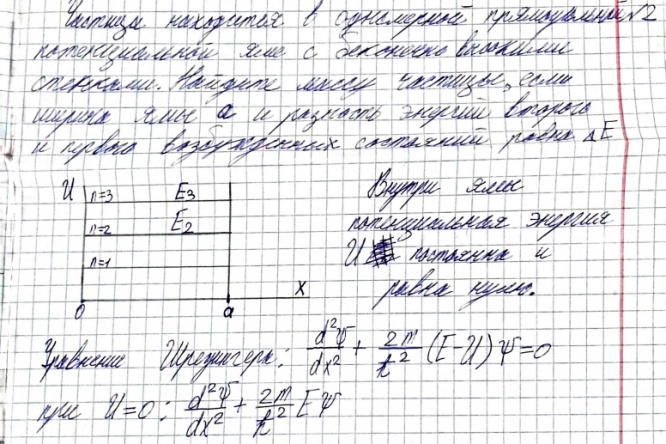 Частица находится в одномерной прямоугольной №2
потенциальной яме с бесконечно высокими
стенками. Найдите массу частицы, если
ширина ямы a и разность энергий второго
и первого возбужденных состояний равна ΔE
U n=3 E3
n=2 E2
n=1
0 a X
Внутри ямы
потенциальная энергия
U постоянна и
равна нулю.
Уравнение Шредингера: d²Ψ/dx² + 2m/ħ² (E-U) Ψ=0
при U=0: d²Ψ/dx² + 2m/ħ² E Ψ